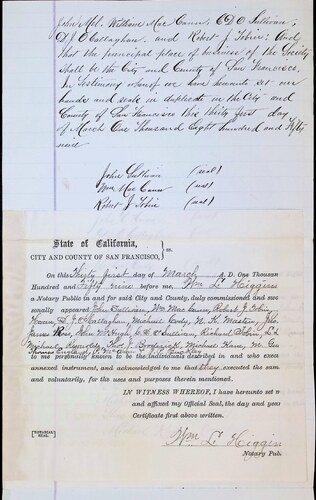 John Mel. William Mac Cann, C. D. O Sullivan,
D. J. O Callaghan. and Robert J. Tobin; And
that the principal place of business of the Society
Shall be the City and County of San Francisco.
In Testimony whereof we have hereunto set our
hands and seals in duplicate in the City and
County of San Francisco this thirty first day
of March One Thousand Eight Hundred and Fifty
nine
John Sullivan (seal)
Wm Mac Cann (seal)
Robert J. Tobin (seal)
State of California, } ss.
CITY AND COUNTY OF SAN FRANCISCO,
On this Thirty first day of March A. D. One Thousand
Hundred and Fifty nine before me, Wm L. Higgins
a Notary Public in and for said City and County, duly commissioned and
sonally appeared John Sullivan, Wm Mac Cann, Robert J. Tobin
D. J. O'Callaghan, Michael Cody, N. K. Masten, John
James Ross, C. D. O Sullivan, Richard Tobin,
Michael Reynolds, Thos J. Michael Kane, M.
Thomas
to me personally known to be the individuals described in and who exec
annexed instrument, and acknowledged to me that they executed the sam
and voluntarily, for the uses and purposes therein mentioned.
IN WITNESS WHEREOF, I have hereunto set m
and affixed my Official Seal, the day and year
Certificate first above written.
[NOTARIAL SEAL.]
Wm L. Higgin
Notary Pub